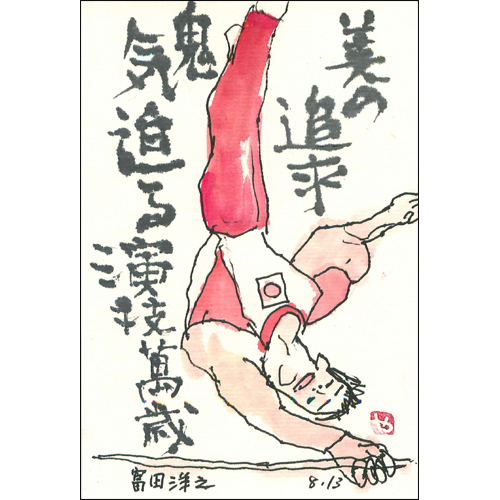 美の
追求
鬼
気迫る演技萬歳
冨田洋之
8.13